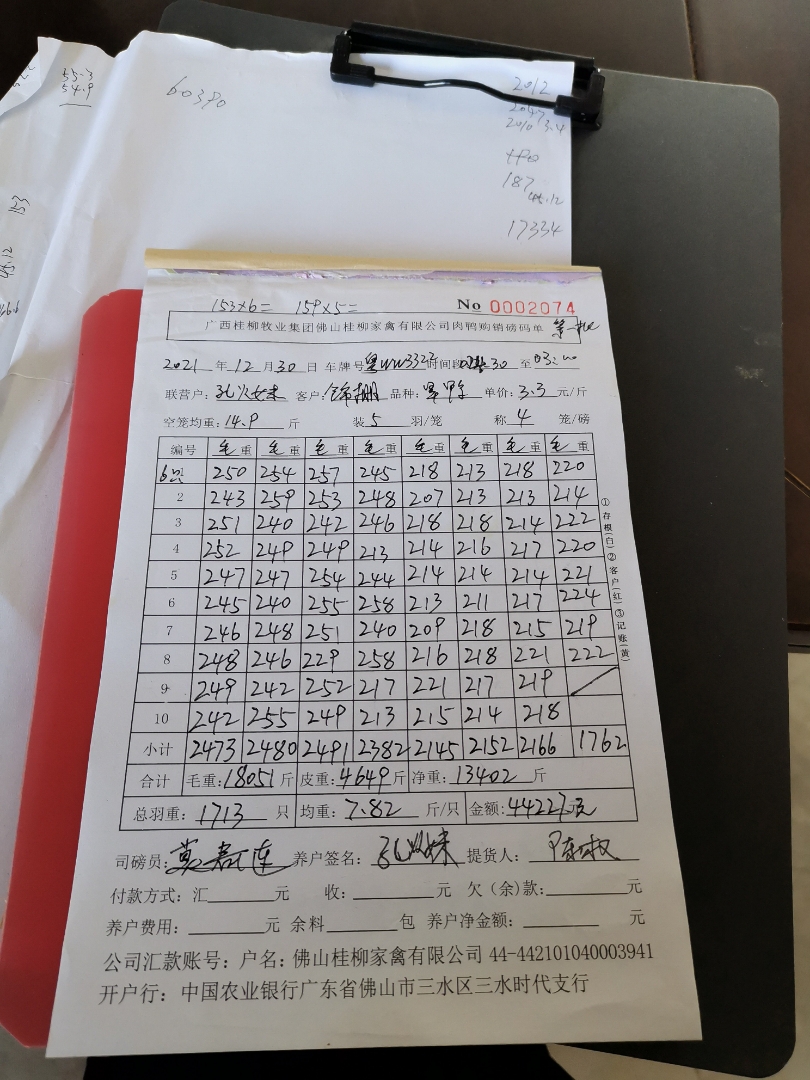 55.3
54.9
60390
2012
2047
2010 3.4
187
45.12
17334
153
45.12
153×6= 159×5=
No 0002074
广西桂柳牧业集团佛山桂柳家禽有限公司肉鸭购销磅码单 第一批
2021 年 12 月 30 日 车牌号 粤WW3323 时间段 30 至 03:00
联营户: 孔火妹 客户: 品种: 单价: 3.3 元/斤
空笼均重: 14.9 斤 装 5 羽/笼 称 4 笼/磅
编号 毛重 毛重 毛重 毛重 毛重 毛重 毛重 毛重
6只 250 254 257 245 218 213 218 220
2 243 259 253 248 207 213 213 214
3 251 240 242 246 218 218 214 222
4 252 249 249 213 214 216 217 220
5 247 247 254 244 214 214 214 221
6 245 240 255 258 213 211 217 224
7 246 248 251 240 209 218 215 219
8 248 246 229 258 216 218 221 222
9 249 242 252 217 221 217 219
10 242 255 249 213 215 214 218
小计 2473 2480 2491 2382 2145 2152 2166 1762
合计 毛重: 18051 斤 皮重: 4649 斤 净重: 13402 斤
总羽重: 1713 只 均重: 7.82 斤/只 金额: 44227元
①存根(白)②客户(红)③记账(黄)
司磅员: 养户签名: 孔火妹 提货人:
付款方式: 汇 元 收: 元 欠(余)款: 元
养户费用: 元 余料 包 养户净金额: 元
公司汇款账号: 户名: 佛山桂柳家禽有限公司 44-442101040003941
开户行: 中国农业银行广东省佛山市三水区三水时代支行